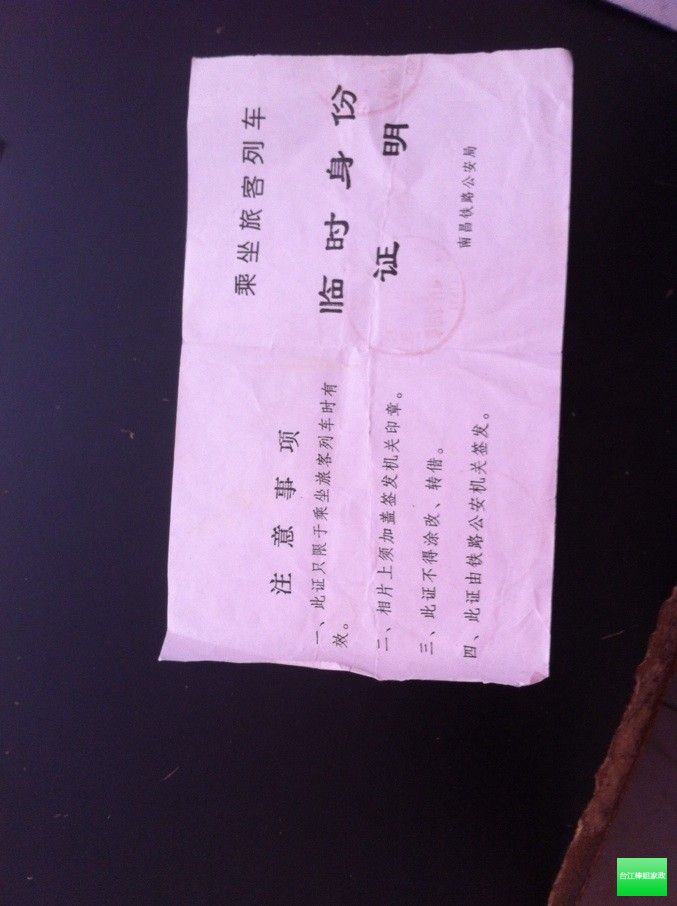 注意事项
一、此证只限于乘坐旅客列车时有
效。
二、相片上须加盖签发机关印章。
三、此证不得涂改、转借。
四、此证由铁路公安机关签发。
乘坐旅客列车
临时身份
证明
南昌铁路公安局
台江棒姐家政